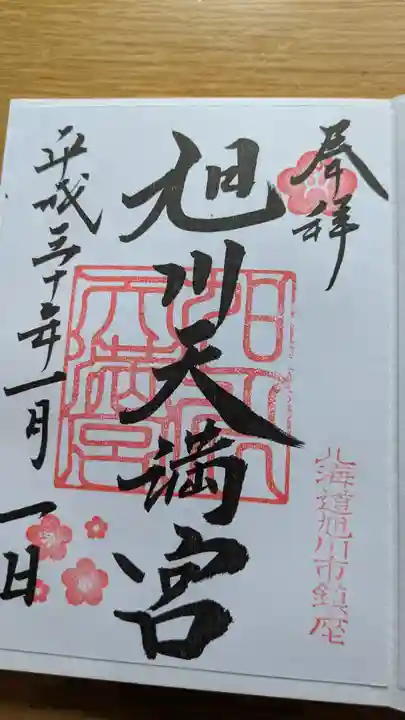 奉拝
北海道旭川市鎮座
旭川天満宮
平成三十年一月一日